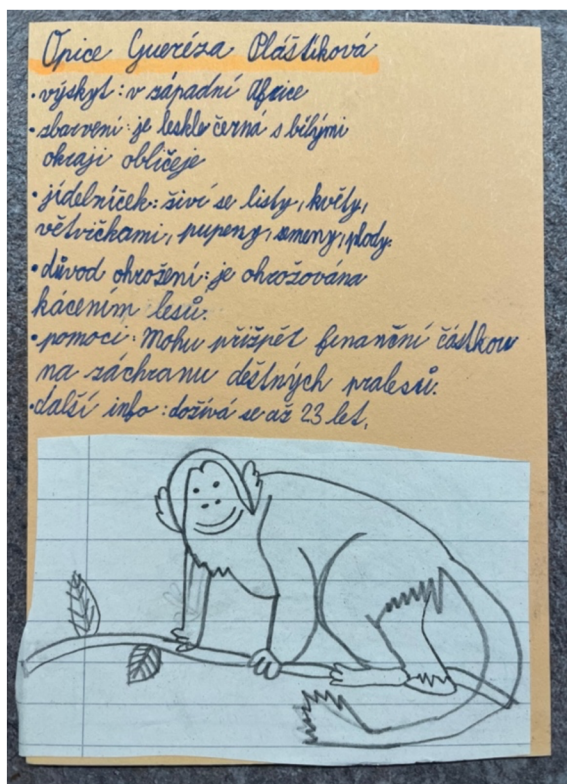 Opice Gueréza Pláštíková
• výskyt: v západní Africe
• zbarvení: je leskle černá s bílými
okraji obličeje
• jídelníček: živí se listy, květy,
větvičkami, pupeny, semeny, plody.
• důvod ohrožení: je ohrožována
kácením lesů.
• pomoci: Mohu přižpět finanční částkou
na záchranu deštných pralesů.
• další info: dožívá se až 23 let.